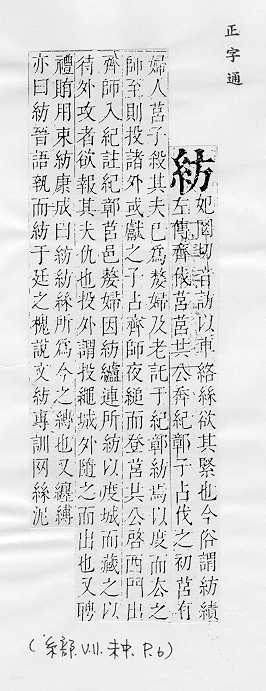 正字通
紡
妃罔切音訪以車絡絲欲其緊也今俗謂紡績
左傳齊伐莒莒共公奔紀鄣子占伐之初莒有
婦人莒子殺其夫巳為嫠婦及老託于紀鄣紡焉以度而去之
師至則投諸外或獻之子占齊師夜縋而登莒共公啓西門出
齊師入紀註紀鄣莒邑嫠婦因紡纑連所紡以度城而藏之以
待外攻者欲報其夫仇也投外謂投繩城外隨之而出也又聘
禮賄用束紡康成曰紡紡絲所為今之縳也又纏縛
亦曰紡晉語執而紡于廷之槐說文紡專訓网絲泥
(糸部.V.11.未中.P.6)